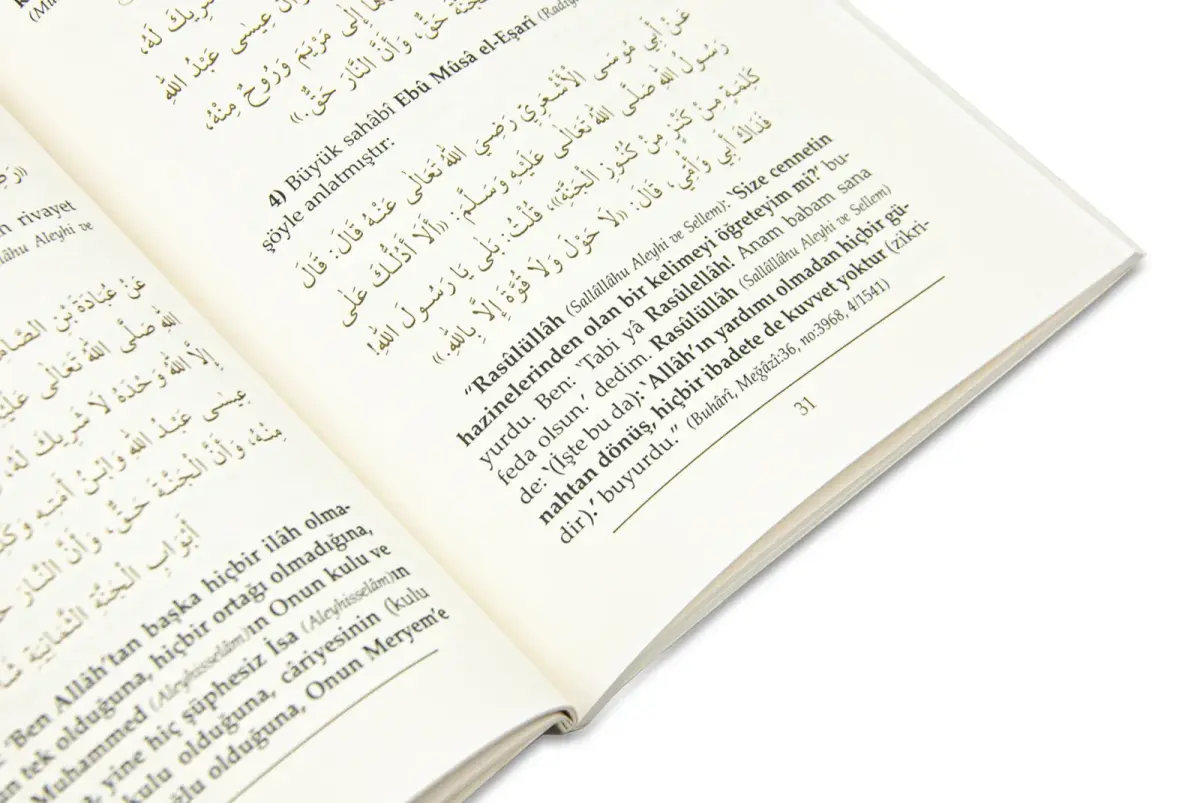 «رَضِ
n rivayet
lâhu Aleyhi ve
عَنْ عُبَادَةَ بْنِ الصَّامِ
اللهِ صَلَّى اللهُ تَعَالَى عَلَيْهِ
إِلَّا اللهُ وَحْدَهُ لَا شَرِيكَ لَهُ،
عِيسَى عَبْدُ اللهِ وَابْنُ أَمَتِهِ وَكَلِ
مِنْهُ، وَأَنَّ الْجَنَّةَ حَقٌّ، وَأَنَّ النَّارَ حَ
أَبْوَابِ الْجَنَّةِ الثَّمَانِيَةِ شَا
'Ben Allâh'tan başka hiçbir ilâh olma-
an tek olduğuna, hiçbir ortağı olmadığına,
Muhammed (Aleyhisselâm)ın Onun kulu ve
, yine hiç şüphesiz İsa (Aleyhisselâm)ın
kulu olduğuna, câriyesinin (kulu
ğlu olduğuna, Onun Meryem'e
شَرِيكَ لَهُ،
وَأَنَّ عِيسَى عَبْدُ اللهِ
إِلَى مَرْيَمَ وَرُوحٌ مِنْهُ،
حَقٌّ، وَأَنَّ النَّارَ حَقٌّ.»
4) Büyük sahâbî Ebû Mûsâ el-Eşarî (Radıy
şöyle anlatmıştır:
عَنْ أَبِي مُوسَى الْأَشْعَرِيِّ رَضِيَ اللهُ تَعَالَى عَنْهُ قَالَ: قَالَ
رَسُولُ اللهِ صَلَّى اللهُ تَعَالَى عَلَيْهِ وَسَلَّمَ: «أَلَا أَدُلُّكَ عَلَى
كَلِمَةٍ مِنْ كَنْزٍ مِنْ كُنُوزِ الْجَنَّةِ»، قُلْتُ: بَلَى يَا رَسُولَ اللهِ!
فَدَاكَ أَبِي وَأُمِّي، قَالَ: «لَا حَوْلَ وَلَا قُوَّةَ إِلَّا بِاللهِ.»
"Rasûlüllâh (Sallâllâhu Aleyhi ve Sellem): 'Size cennetin
hazinelerinden olan bir kelimeyi öğreteyim mi?' bu-
yurdu. Ben: 'Tabi yâ Rasûlellâh! Anam babam sana
feda olsun.' dedim. Rasûlüllâh (Sallâllâhu Aleyhi ve Sellem)
de: '(İşte bu da): 'Allâh'ın yardımı olmadan hiçbir gü-
nahtan dönüş, hiçbir ibadete de kuvvet yoktur (zikri-
dir).' buyurdu." (Buhârî, Meğâzî:36, no:3968, 4/1541)
31